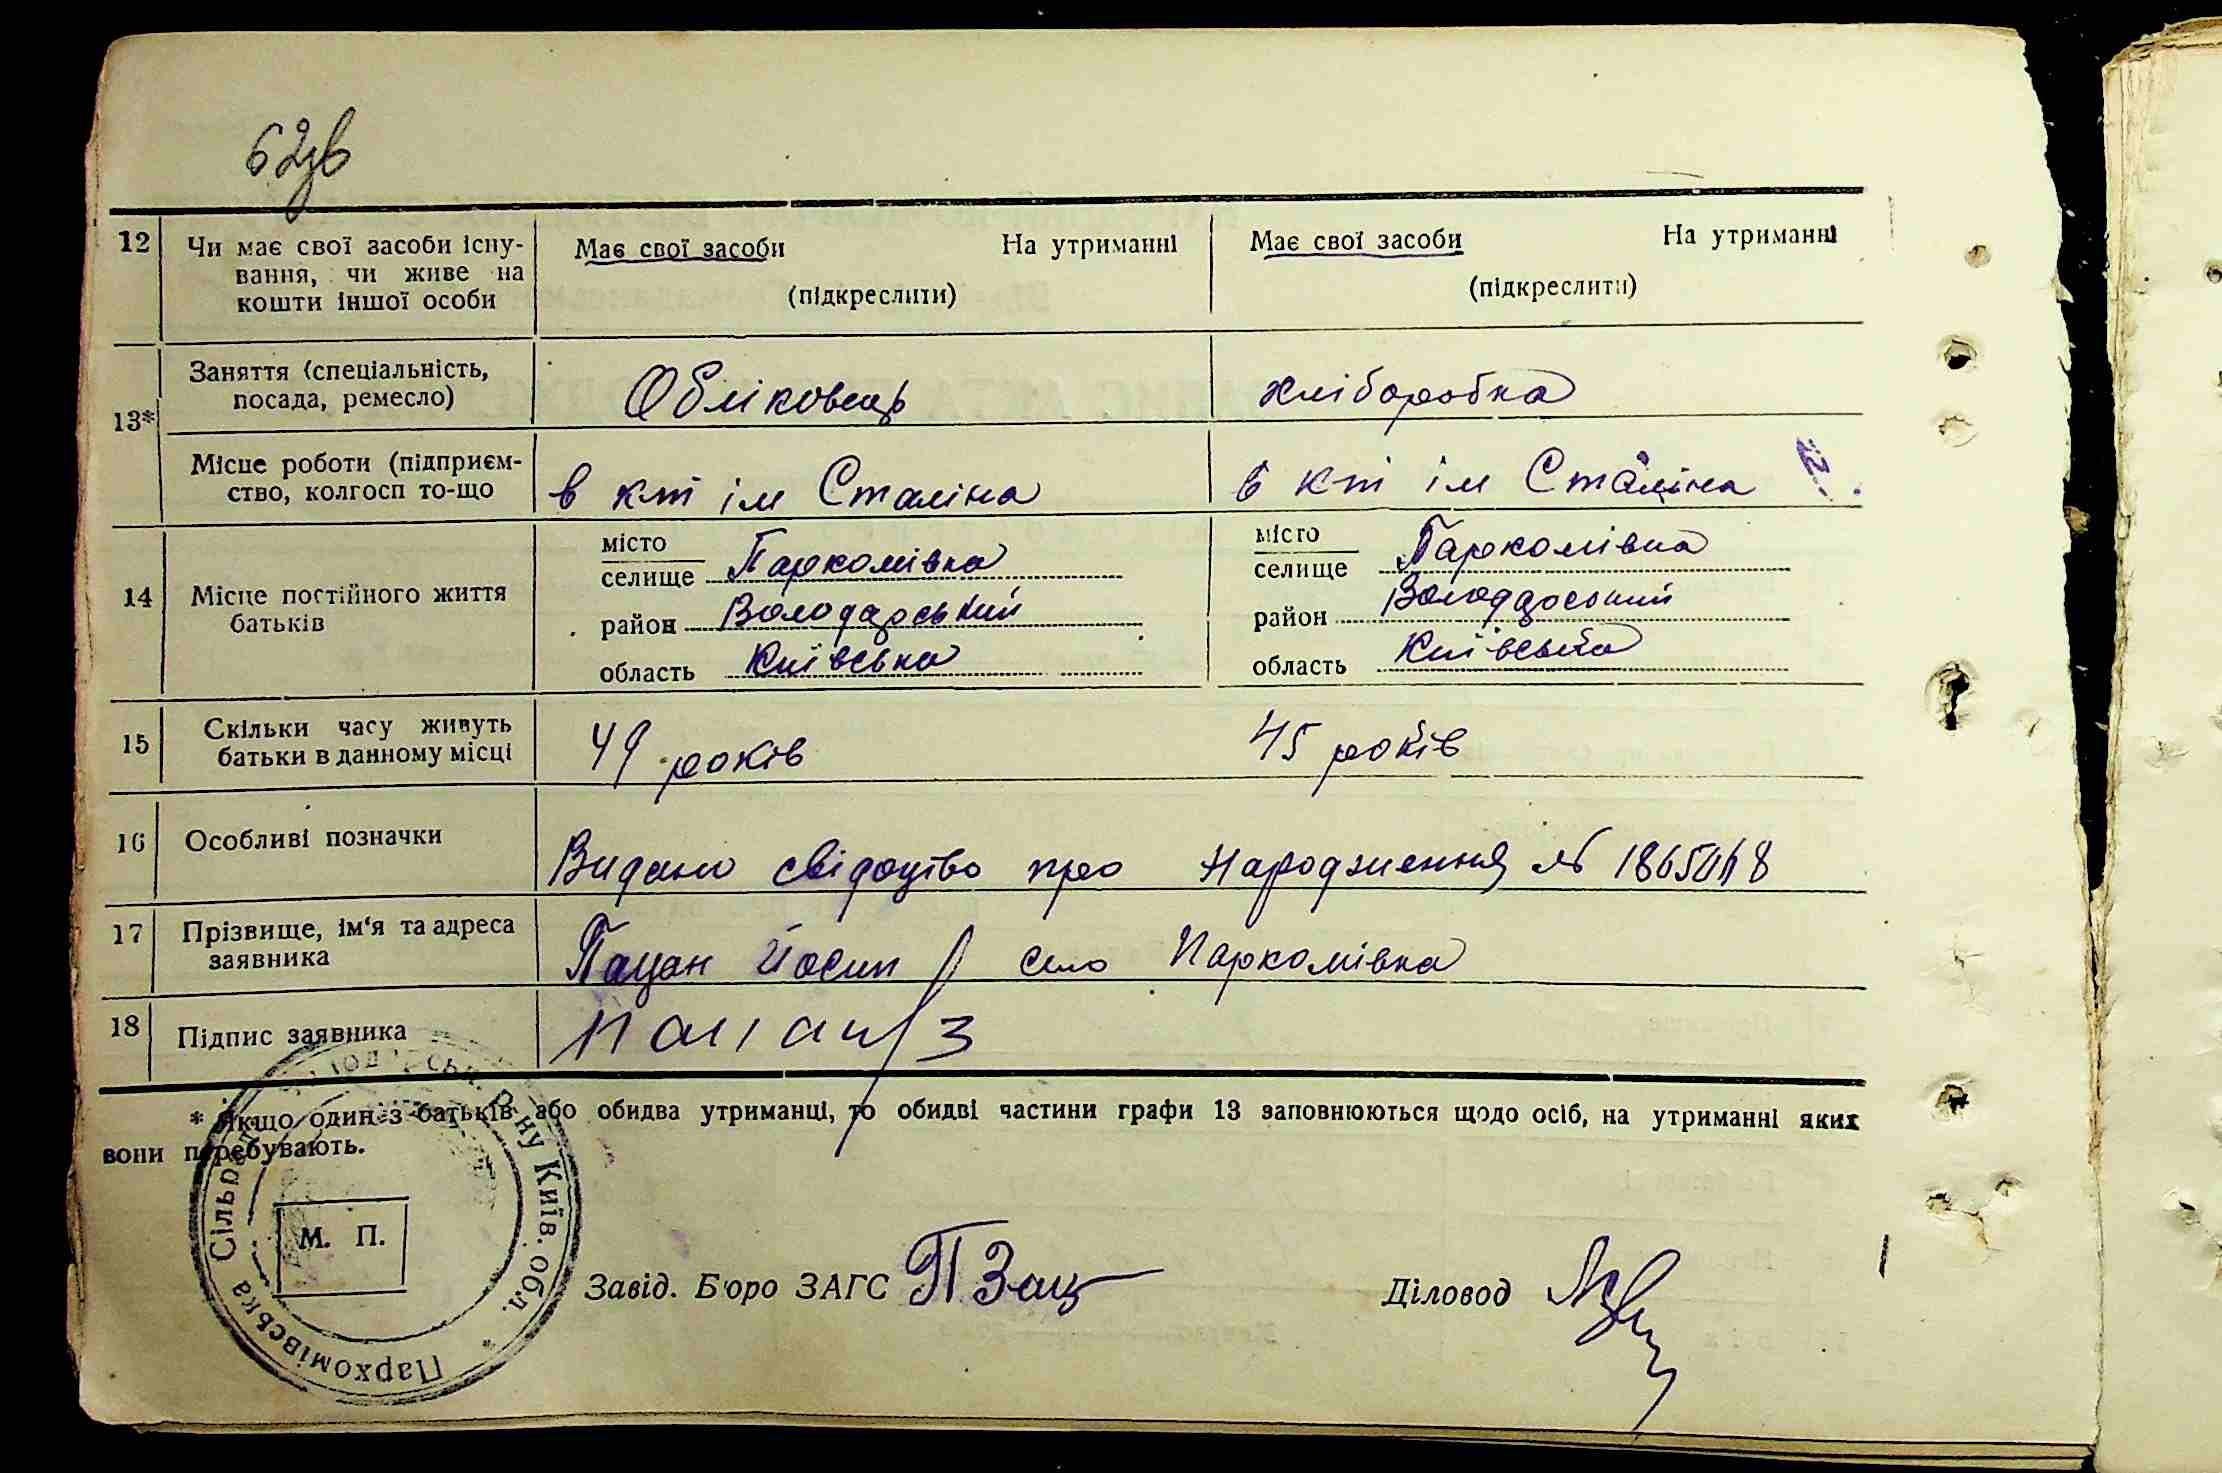 62зв
12 Чи має свої засоби існу- Має свої засоби На утриманні Має свої засоби На утриманні
вання, чи живе на
кошти іншої особи (підкреслити) (підкреслити)
13* Заняття (спеціальність, Обліковець хліборобка
посада, ремесло)
Місце роботи (підприєм- в кті ім Сталіна в кті ім Сталіна
ство, колгосп то-що
14 Місце постійного життя батьків
місто
селище Паркомівка
район Володарський
область Київська
місто
селище Паркомівка
район Володарський
область Київська
15 Скільки часу живуть 49 років 45 років
батьки в данному місці
16 Особливі позначки Видано свідоцтво про народження №
17 Прізвище, ім'я та адреса Пацан Йосип село Паркомівка
заявника
18 Підпис заявника
* Якщо один з батьків або обидва утриманці, то обидві частини графи 13 заповнюються щодо осіб, на утриманні яких
вони перебувають.
Пархомівська Сільрада Р-ну Київ. обл. *
М. П.
Завід. Бюро ЗАГС Діловод